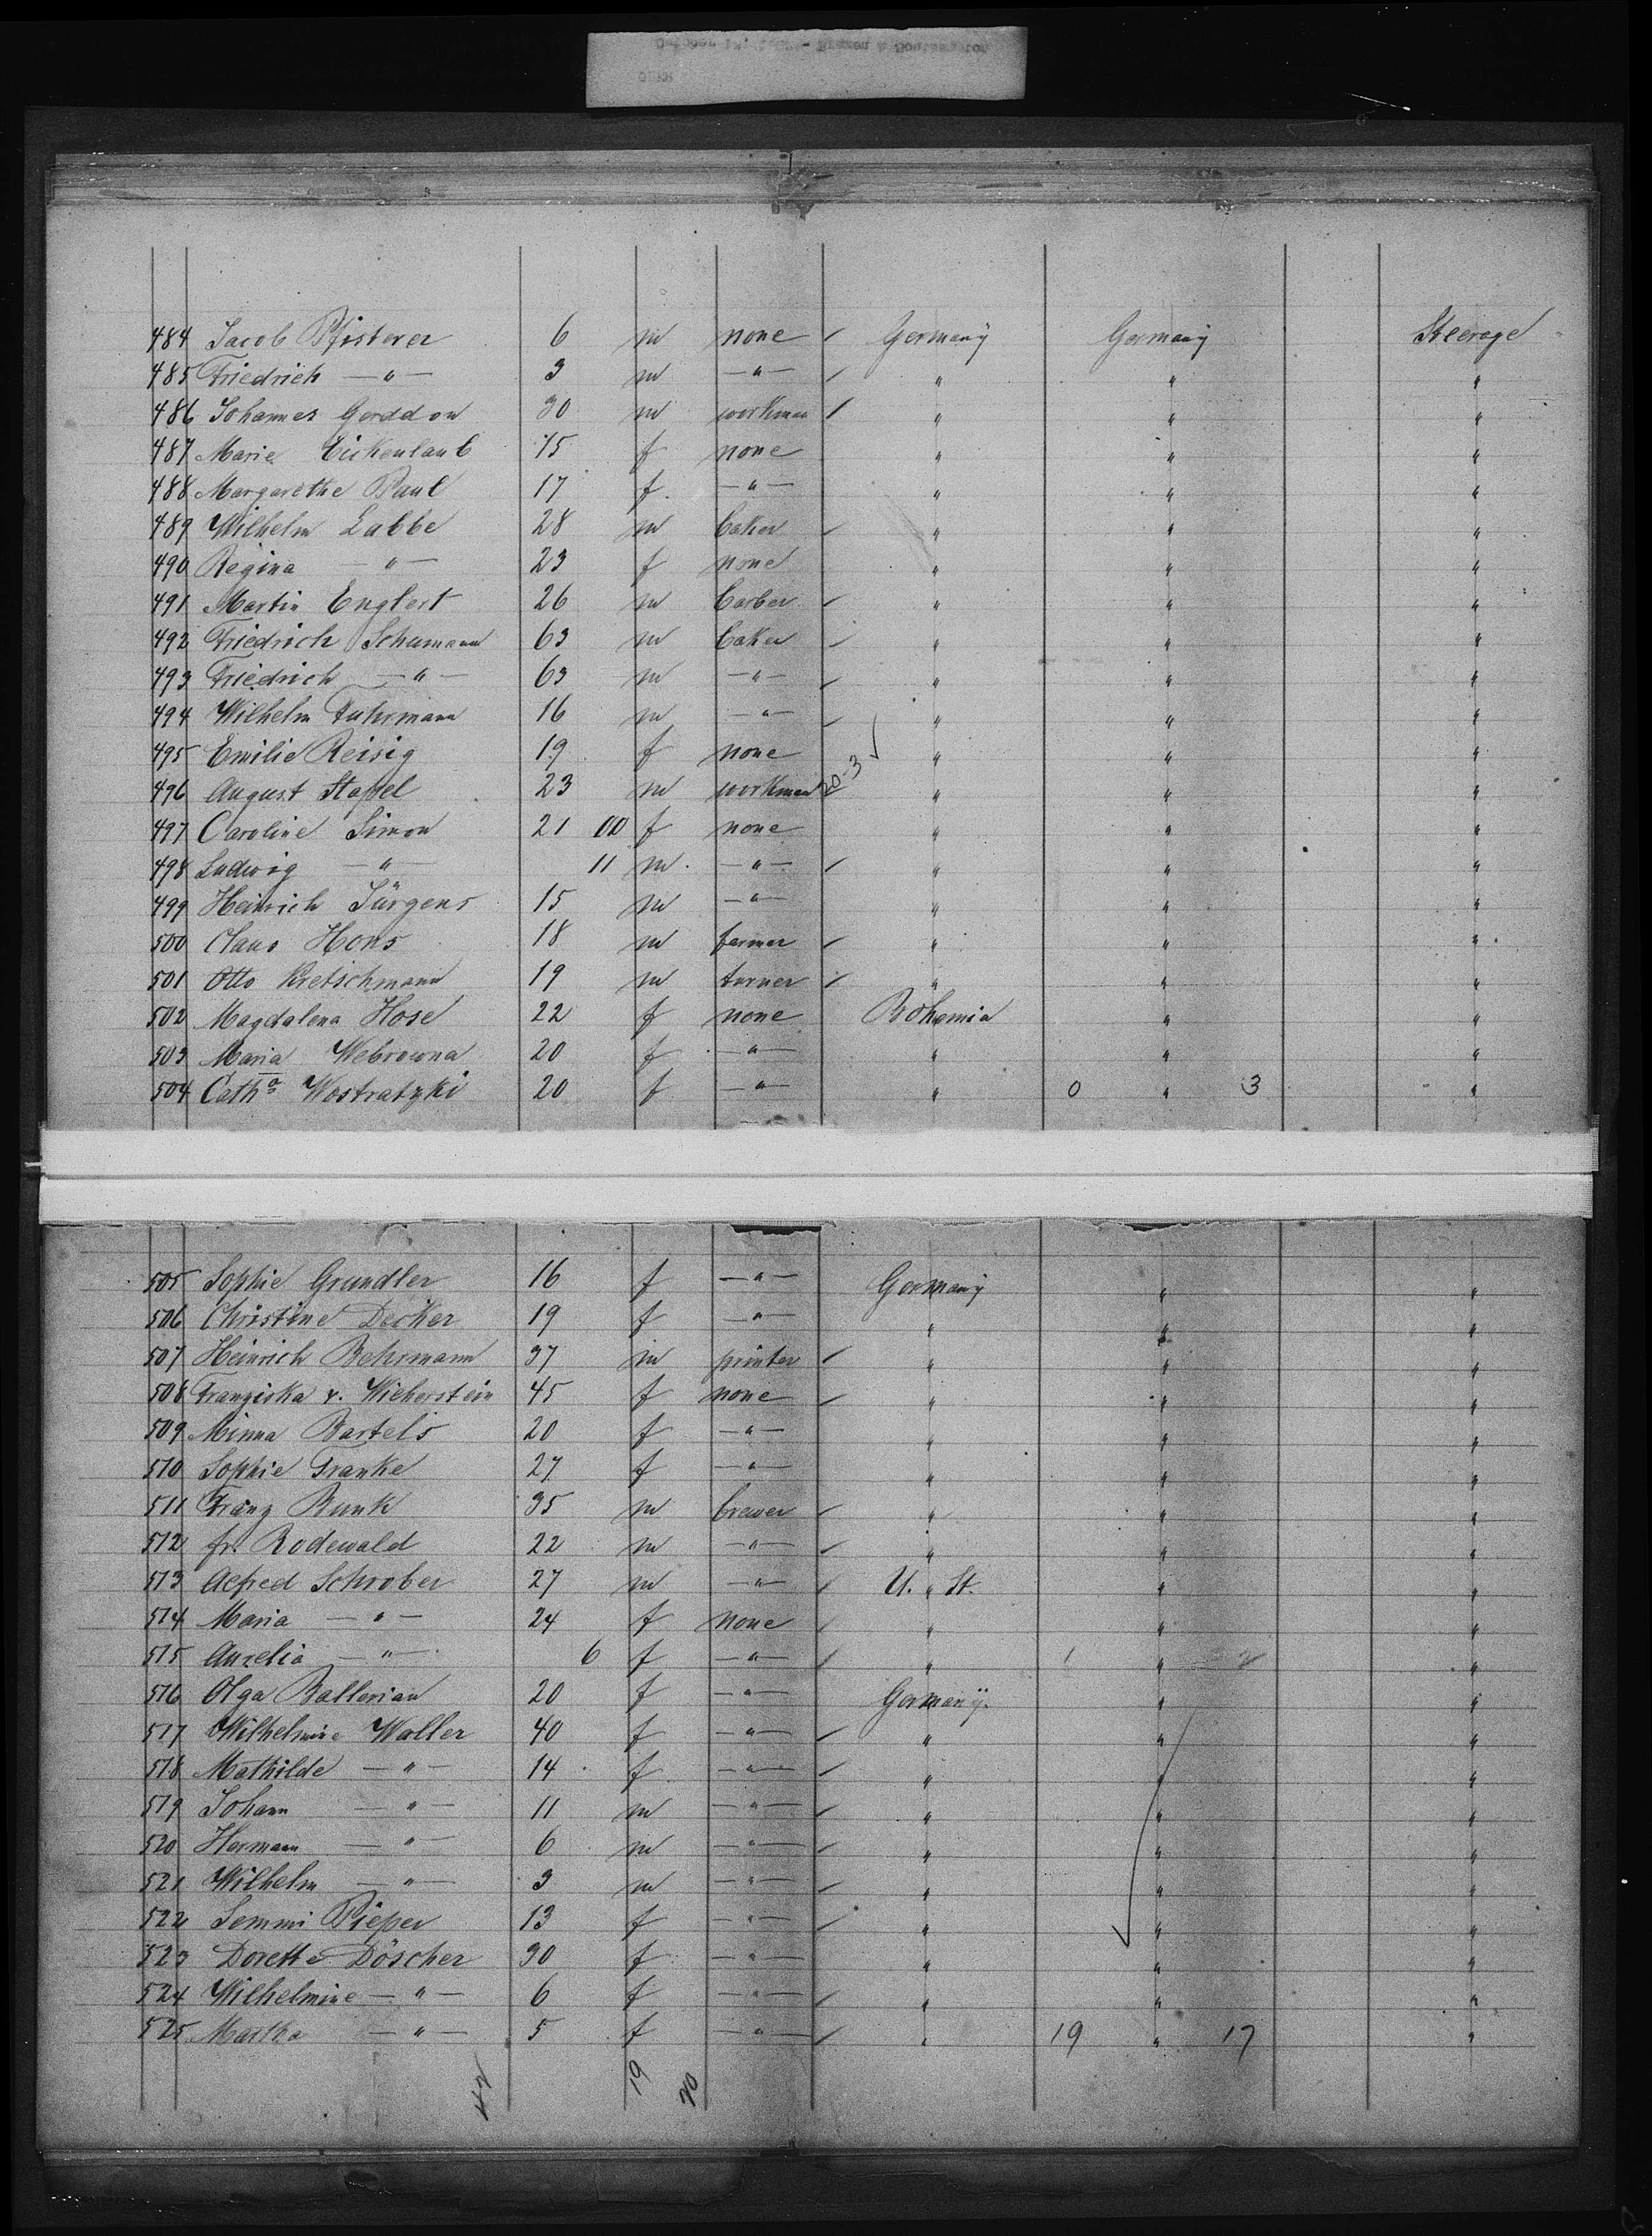 484 Jacob Pfisterer 6 m none Germany Germany Steerage
485 Friedrich —"— 3 m —"— " " "
486 Johannes Gerddon 30 m workman " " "
487 Marie Eickenlaub 15 f none " " "
488 Margarethe Paul 17 f. —"— " " "
489 Wilhelm Labbe 28 m baker " " "
490 Regina —"— 23 f none " " "
491 Martin Englert 26 m barber " " "
492 Friedrich Schumann 63 m baker " " "
493 Friedrich —"— 63 m —"— " " "
494 Wilhelm Fuhrmann 16 m —"— " " "
495 Emilie Reisig 19 f none " " "
496 August Stapel 23 m workman 20-3 " " "
497 Caroline Simon 21 f none " " "
498 Ludwig —"— 11 m. —"— " " "
499 Heinrich Jürgens 15 m —"— " " "
500 Claus Hons 18 m farmer " " "
501 Otto Kretschmann 19 m turner " " "
502 Magdalena Hose 22 f none Bohemia " "
503 Maria Webrowna 20 f —"— " " "
504 Cath^a Wostratzki 20 f —"— " 0 " 3 "
505 Sophie Grundler 16 f —"— Germany " "
506 Christine Decker 19 f —"— " " "
507 Heinrich Behrmann 37 m printer " " "
508 Franziska v. Wieherstein 45 f none " " "
509 Minna Bartels 20 f —"— " " "
510 Sophie Franke 27 f —"— " " "
511 Franz Bunk 35 m brewer " " "
512 fr. Rodewald 22 m —"— " " "
513 Alfred Schrober 27 m —"— U. " St. " "
514 Maria —"— 24 f none " " "
515 Aurelia —"— 6 f —"— " 1 " 2 "
516 Olga Ballerian 20 f —"— Germany. " "
517 Wilhelmine Waller 40 f —"— " " "
518 Mathilde —"— 14 f —"— " " "
519 Johann —"— 11 m —"— " " "
520 Hermann —"— 6 m —"— " " "
521 Wilhelm —"— 3 m —"— " " "
522 Semmi Pieper 13 f —"— " " "
523 Dorette Döscher 30 f —"— " " "
524 Wilhelmine —"— 6 f —"— " " "
525 Martha —"— 5 f —"— " 19 " 17 "
19 20